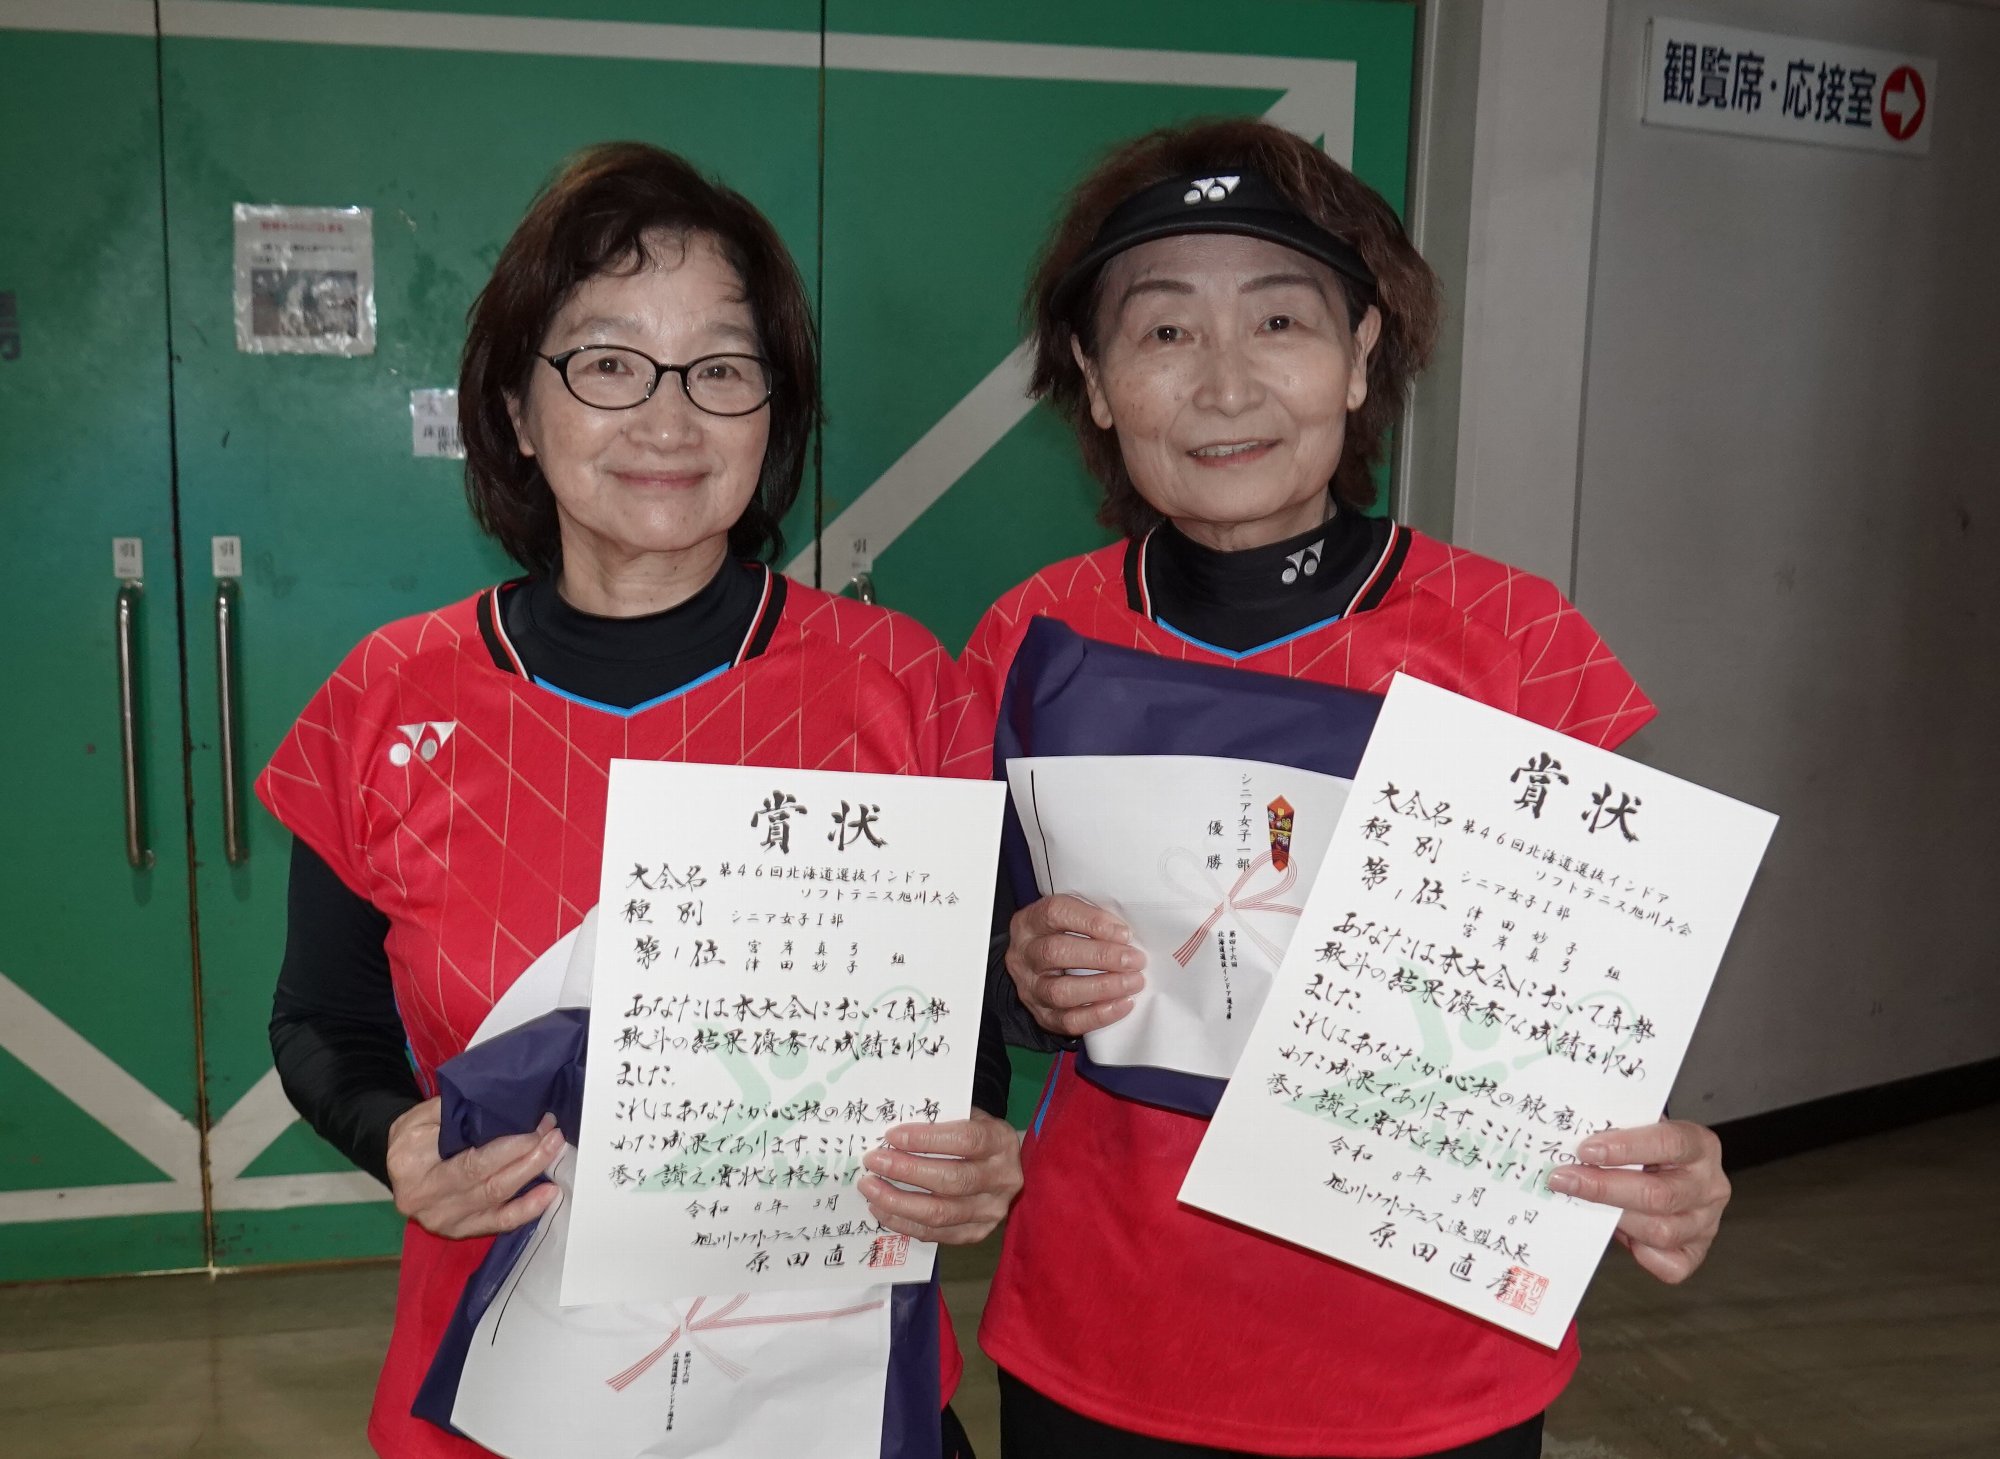 観覧席・応接室
引
引
引
賞状
大会名 第46回北海道選抜インドア
ソフトテニス旭川大会
種別 シニア女子Ⅰ部
第1位 宮岸真弓
津田妙子 組
あなたは本大会において真摯
敢斗の結果優秀な成績を収め
ました.
これはあなたが心技の錬磨に努
めた成果であります.ここに
誉を讃え賞状を授与いた
令和 8年 3月
旭川ソフトテニス連盟会長
原田直彦
第四十六回
シニア女子一部
優勝
第四十六回
賞状
大会名 第46回北海道選抜インドア
ソフトテニス旭川大会
種別 シニア女子Ⅰ部
第1位 津田妙子
宮岸真弓 組
あなたは本大会において真摯
敢斗の結果優秀な成績を収め
ました.
これはあなたが心技の錬磨に
めた成果であります.ここにその
誉を讃え賞状を授与いたし
令和 8年 3月 8日
旭川ソフトテニス連盟会長
原田直彦